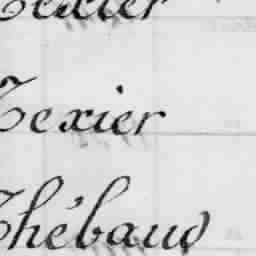 Texier
Texier
Thébaud